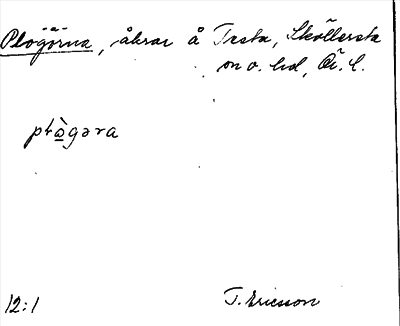 Plögärna, åkrar å Tasta, Sköllersta
sn o. hd, Ör. l.
pɬø̀gəra
12:1
T. Ericsson